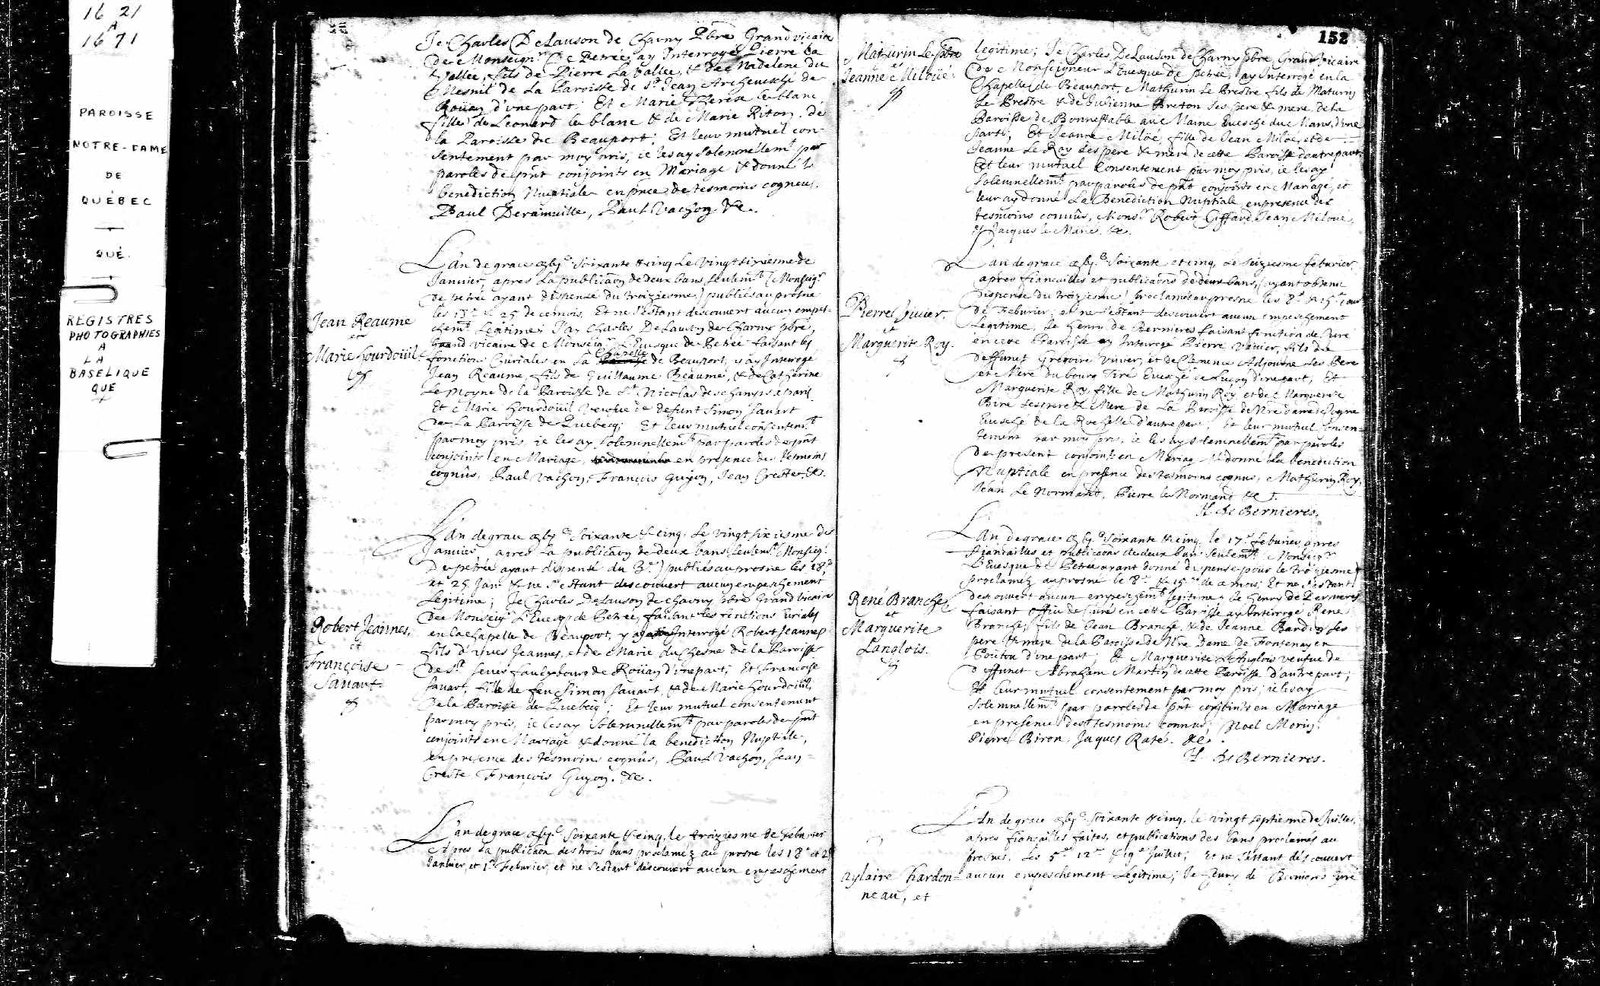 1621
A
1671
PAROISSE
NOTRE-DAME
DE
QUÉBEC
QUÉ.
REGISTRES
PHOTOGRAPHIES
A
LA
BASELIQUE
QUE
Je Charles De Lauson de Charny Pbre Grand vicaire
de Monseignr de Petrée, ay Interrogé Pierre La
Vallee, fils de Pierre La Vallee, & de Madelene du
Mesnil de la Paroisse de St Jean Archevesché de
Rouan d'une part; Et Marie Therese le blanc
fille de Leonard le blanc & de Marie Riton, de
la Paroisse de Beauport; Et leur mutuel con-
sentement par moy pris, ie les ay solemnellemt par
paroles de pnt conjoints en Mariage & donné la
benediction Nuptiale en pnce de tesmoins cogneus,
Paul Derainville, Paul Vachon, &c.
Jean Reaume
et
Marie Hourdouil
L'an de grace soixante & cinq Le vingt sixiesme de
Janvier, apres la publicaon de deux bans seulemt (Monseigr
de petrée ayant dispensé du troiziesme) publiés au prosne
les 18e & 25 de ce mois, Et ne s'estant descouvert aucun empes-
chemt Legitime; Je Charles De Lauson de Charny pbre,
Grand vicaire de Monseigr L'Evesque de Petrée faisant les
fonctions Curiales en la Chapelle de Beauport, y ay Interrogé
Jean Reaume, fils de Guillaume Reaume, & de Catherine
Le moyne de la Paroisse de St Nicolas des champs a paris
Et Marie Hourdouil veufve de defunt Simon Savart
de La Paroisse de Quebecq; Et leur mutuel consentemt
par moy pris ie les ay solemnellemt par paroles de pnt
conjoints en Mariage, en presence des tesmoins
cognûs, Paul Vachon, François Guyon, Jean Crestet, &c.
Robert Jeannes,
et
Françoise
Savart
L'an de grace soixante & cinq, Le vingt sixiesme de
Janvier, apres la publicaon de deux bans seulemt (Monseigr
De petrée ayant dispensé du 3e) publiés au prosne les 18e
et 25 Janr & ne s'estant descouvert aucun empeschement
Legitime; Je Charles De Lauson de Charny pbre Grand vicaire
De Monseigr L'Evesque de Petrée, faisant les fonctions Curiales
en la Chapelle de Beauport, y ay Interrogé Robert Jeannes
fils d'Yves Jeannes, et de Marie du Chesne de la Paroisse
de St Sever fauxbourg de Rouan d'une part; Et Francoise
Savart, fille de feu Simon Savart, & de Marie Hourdouil,
De la Paroisse de Quebecq; Et leur mutuel consentement
par moy pris, ie les ay Solemnellemt par paroles de pnt
conjoints en Mariage & donné la benediction Nuptiale,
en presence des tesmoins cognûs, Paul Vachon, Jean
Creste François Guyon, &c.
L'an de grace soixante & cinq, le troiziesme de Febvrier
Apres la publication des trois bans proclamez au prosne les 18e et 25
Janvier, et 1er Febvrier, et ne s'estant descouvert aucun empeschement
152
Mathurin Le Prestre
et
Jeanne Miloüe.
legitime; Je Charles De Lauson de Charny pbre Grand vicaire
De Monseigneur L'Evesque de Petrée, ay Interrogé en la
Chapelle de Beauport, Mathurin Le Prestre fils de Maturin
Le Prestre & de Breton ses pere & mere de la
Paroisse de Bonnestable au Maine Evesché du Mans, d'une
part; Et Jeanne Miloüe, fille de Jean Miloüe, et de
Jeanne Le Roy ses pere & mere de cette Paroisse d'autre part,
Et leur mutuel Consentement par moy pris, ie les ay
solemnellemt par paroles de pnt conjoints en Mariage, et
leur ay donné La Benediction Nuptiale en presence des
tesmoins connûs, Monsr Robert Giffard, Jean Miloüe,
& Jacques le Marié. &c.
Pierre Juvier,
et
Marguerite Roy.
L'an de grace soixante et cinq, le seiziesme febvrier,
apres fiancailles et publications de deux bans, (ayant obtenu
dispense du troiziesme) proclamés au prosne les 8e & 15e Jour
de Febvrier, et ne s'estant descouvert aucun empeschement
Legitime, Je Henry de Bernieres faisant fonction de Curé
en cette Paroisse ay Interrogé Pierre Juvier fils de
deffunct Gregoire Vivier, et de ses Pere
et Mere du bourg Evesché de Luçon d'une part, Et
Marguerite Roy fille de Mathurin Roy et de Marguerite
Biré ses pere & Mere de La Paroisse de Nre dame de Cogne
Evesché de la Rochelle d'autre part, Et leur mutuel consen-
tement par moy pris, ie les ay solemnellemt par paroles
de present conjoints en Mariage & donné La Benediction
Nuptiale en presence des tesmoins cognus, Mathurin Roy,
Jean Le Normand, Pierre le Normand &c.
H. de Bernieres.
René Branche,
et
Marguerite
Langlois.
L'an de grace soixante & cinq, le 17e febvrier, apres
fiancailles et publications de deux bans seulemt, Monseigr
L'Evesque de Petrée ayant donné dispense pour le troiziesme
proclamez au prosne le 8e & 15e de ce mois, Et ne s'estant
descouvert aucun empeschemt legitime; Je Henry de Bernieres
faisant office de Curé en cette Paroisse ay Interrogé René
Branche, fils de Jean Branche, & de Jeanne Bardin ses
pere & mere de la Paroisse de Nre Dame de Fontenay en
Poitou d'une part, & Marguerite L'Anglois veufve de
deffunct Abraham Martin de cette Paroisse d'autre part;
Et leur mutuel consentement par moy pris; ie les ay
solemnellemt par paroles de pnt conjoints en Mariage
en presence des tesmoins connus, Noel Morin,
Pierre Biron, Jaques Raté. &c.
H. de Bernieres.
Hylaire Chardon-
neau, et
L'An de grace soixante & cinq, le vingt septiesme de Juillet,
apres fiançailles faites, et publications des bans proclamés au
prosnes. les 5e 12e & 19e Juillet; Et ne s'estant descouvert
aucun empeschement Legitime; Je Henry de Bernieres Curé